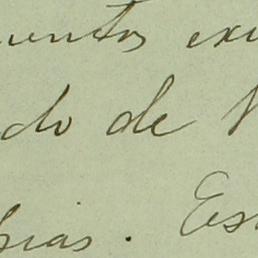 uentos exi
do de
pias. Es